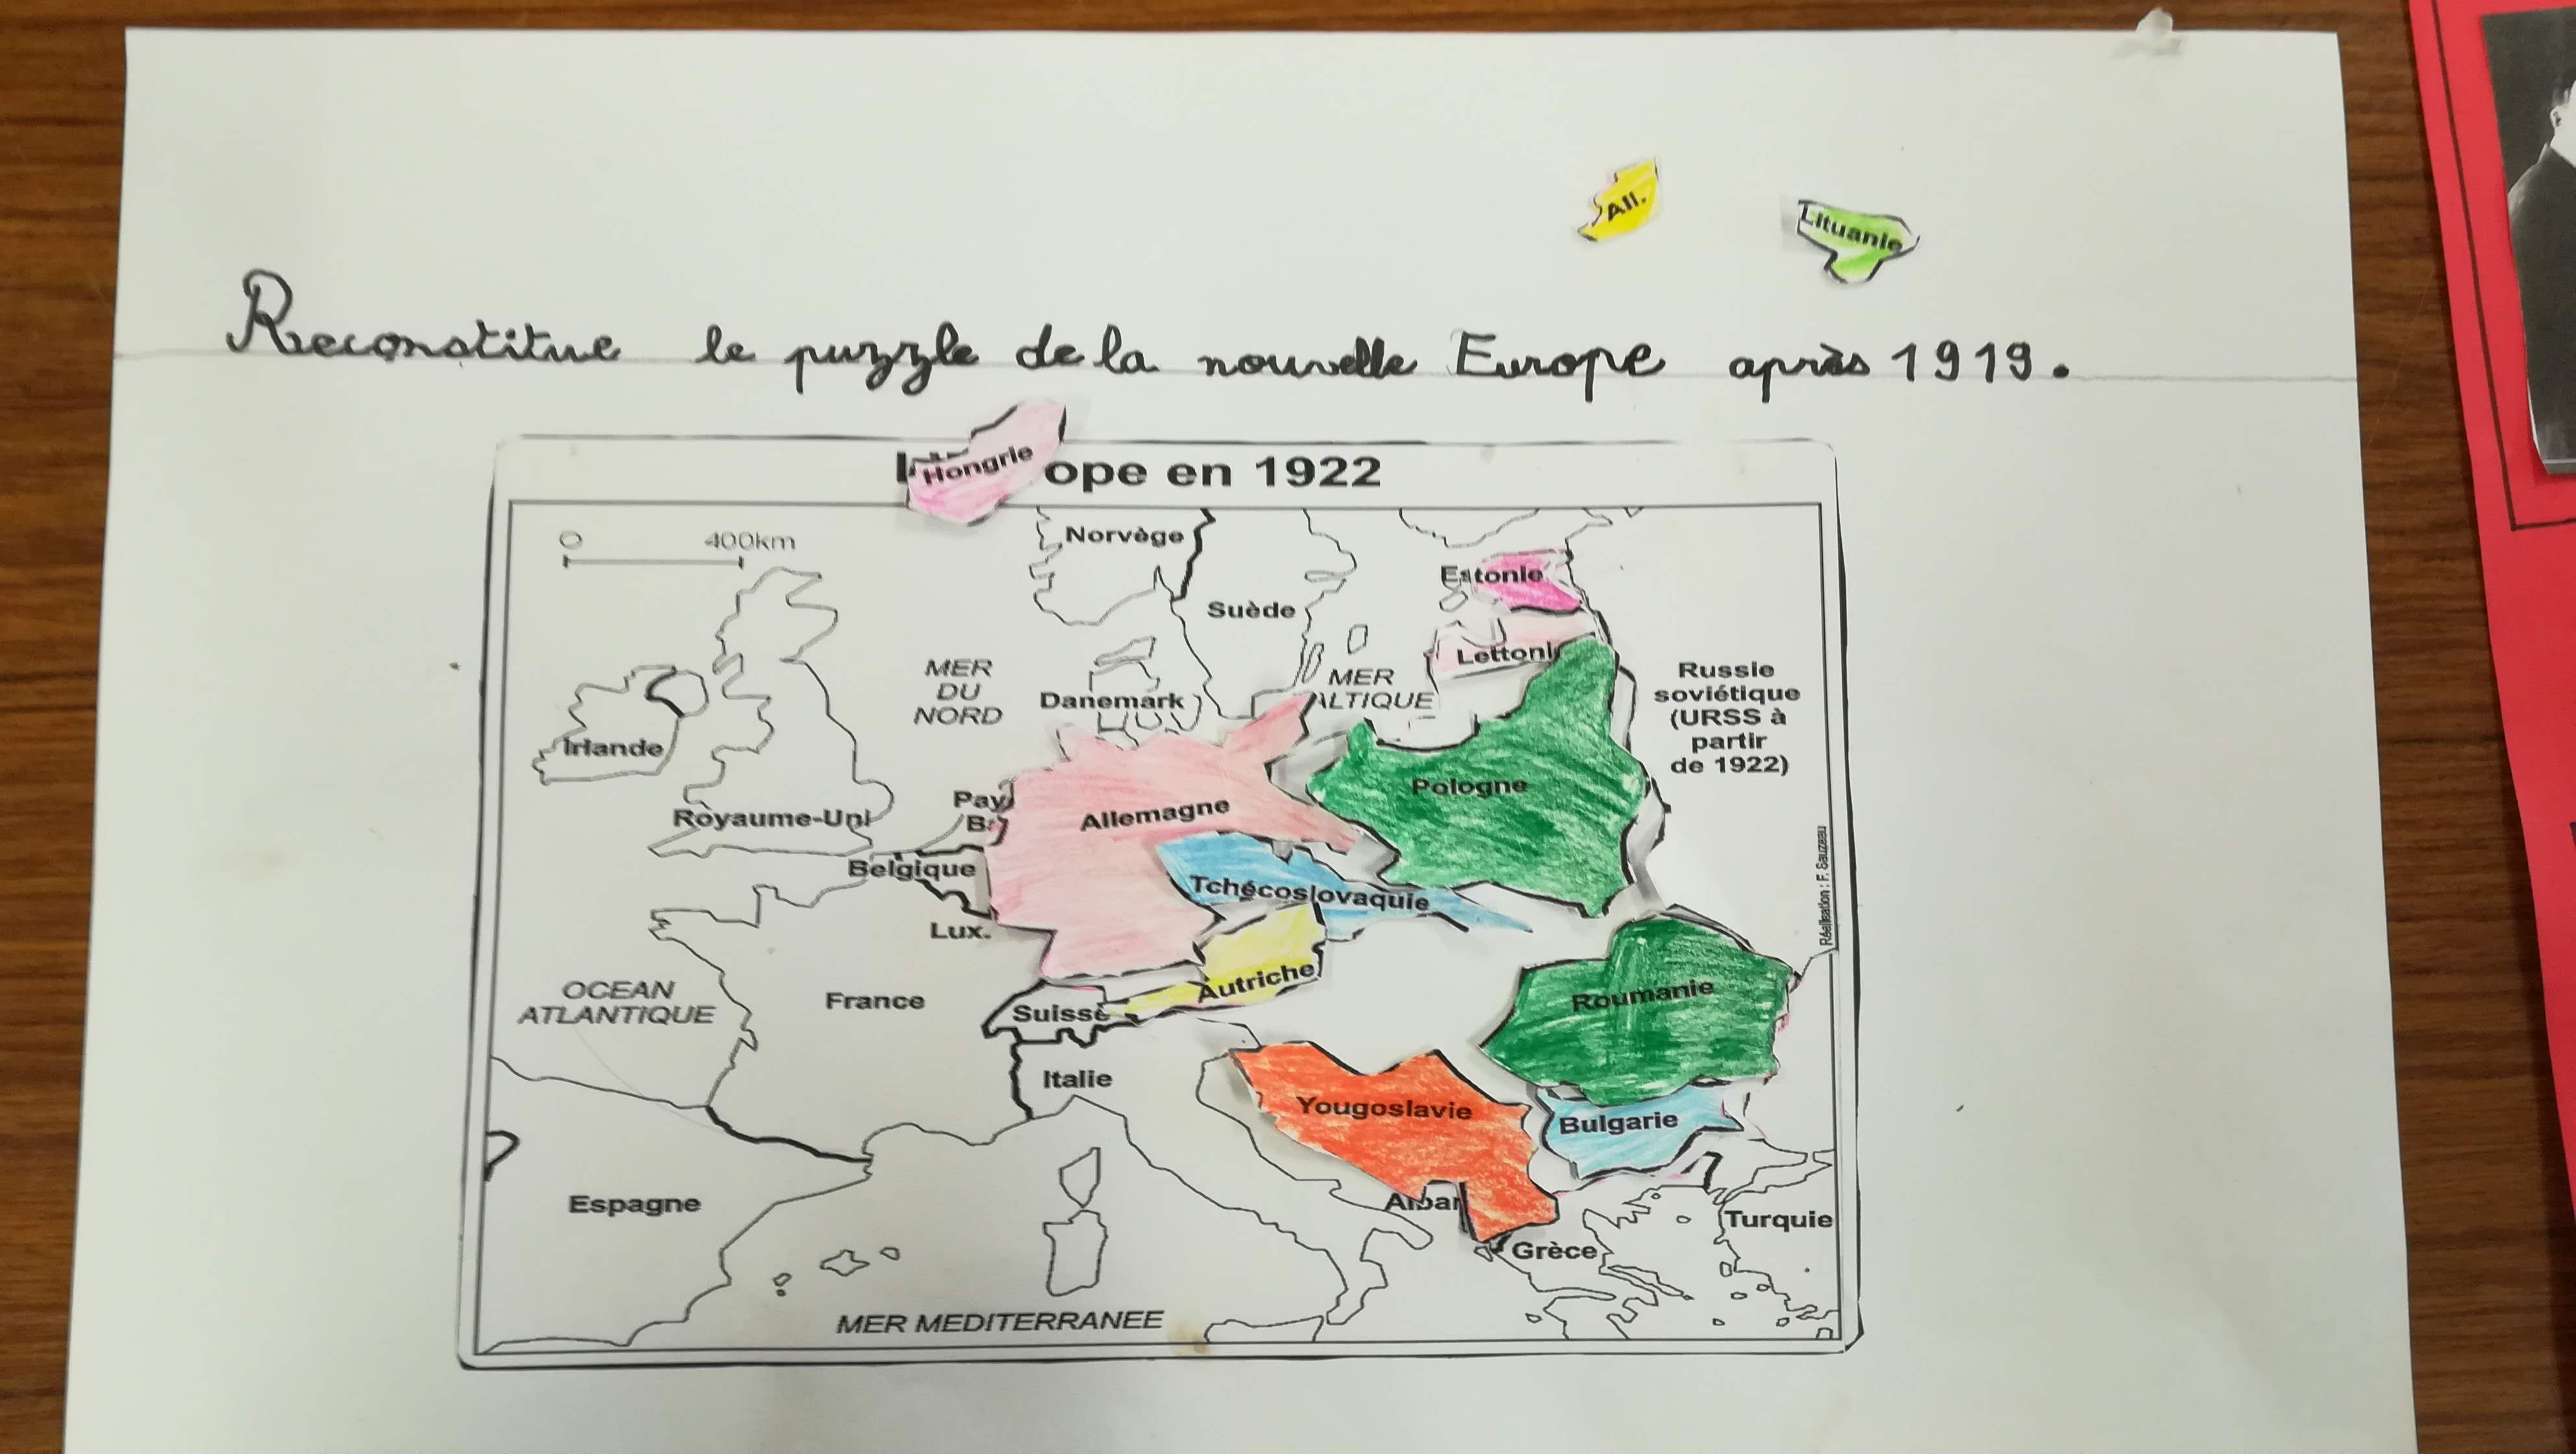 All.
Lituanie
Reconstitue le puzzle de la nouvelle Europe après 1919.
Hongrie
ope en 1922
0 400km
Norvège
Estonie
Suède
Lettoni
MER
DU
NORD
MER
ALTIQUE
Russie
soviétique
(URSS à
partir
de 1922)
Danemark
Irlande
Pologne
Pay
B.
Allemagne
Royaume-Uni
Belgique
Tchécoslovaquie
Lux.
Réalisation : F. Sauzeau
Autriche
OCEAN
ATLANTIQUE
France
Suisse
Roumanie
Italie
Yougoslavie
Bulgarie
Espagne
Alban
Turquie
Grèce
MER MEDITERRANEE